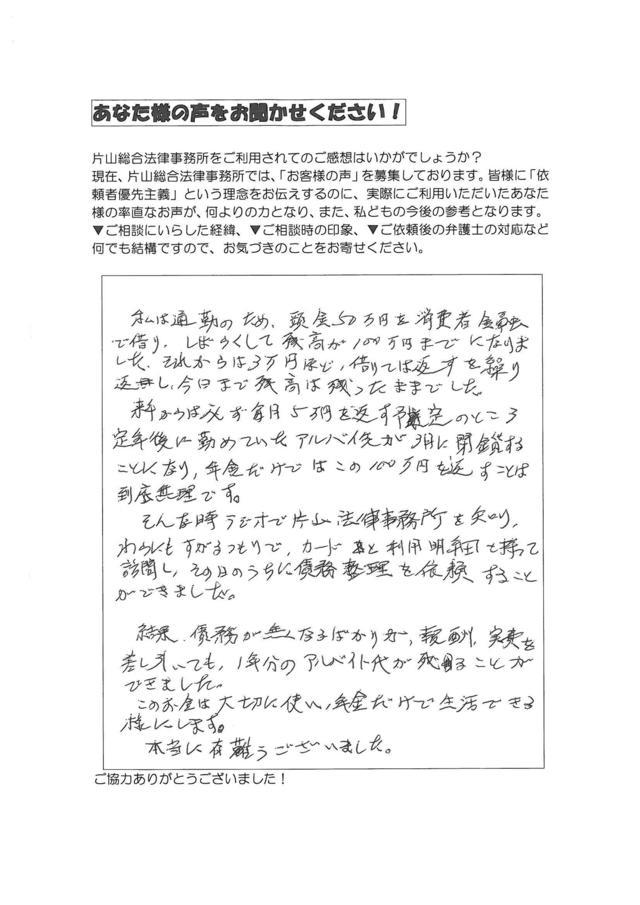 あなた様の声をお聞かせください！
片山総合法律事務所をご利用されてのご感想はいかがでしょうか？
現在、片山総合法律事務所では、「お客様の声」を募集しております。皆様に「依
頼者優先主義」という理念をお伝えするのに、実際にご利用いただいたあなた
様の率直なお声が、何よりの力となり、また、私どもの今後の参考となります。
▼ご相談にいらした経緯、▼ご相談時の印象、▼ご依頼後の弁護士の対応など
何でも結構ですので、お気づきのことをお寄せください。
私は通勤のため、頭金50万円を消費者金融
で借り、しばらくして残高が100万円までになりま
した。それからは3万円ほど、借りては返すを繰り
返し、今日まで残高は残ったままでした。
来年からは必ず毎月5万円を返す予定のところ
定年後に勤めていたアルバイト先が3月に閉鎖する
ことになり、年金だけではこの100万円を返すことは
到底無理です。
そんな時ラジオで片山法律事務所を知り、
わらにもすがるつもりで、カードと利用明細を持って
訪問し、その日のうちに債務整理を依頼すること
ができました。
結果、債務が無くなるばかりか、報酬、実費を
差し引いても、1年分のアルバイト代が残ることが
できました。
このお金は大切に使い、年金だけで生活できる
様にします。
本当に有難うございました。
ご協力ありがとうございました！